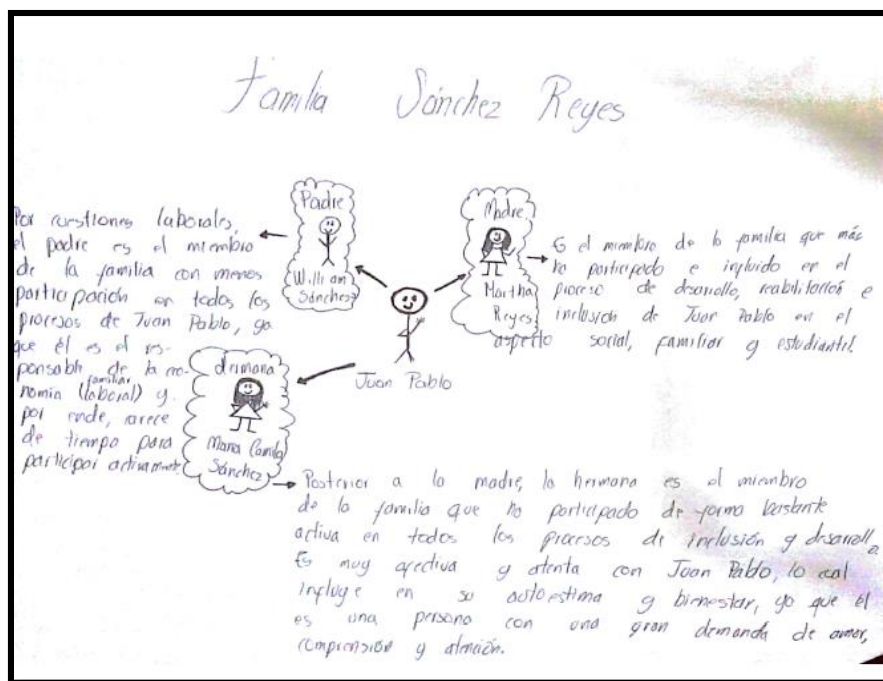 Familia Sánchez Reyes
Padre
Willian
Sánchez
Por cuestiones laborales,
el padre es el miembro
de la familia con menos
participación en todos los
procesos de Juan Pablo, ya
que él es el res-
ponsable de la eco-
nomía familiar (laboral) y
por ende, carece
de tiempo para
participar activamente.
Madre
Martha
Reyes
Es el miembro de la familia que más
ha participado e influido en el
proceso de desarrollo, reabilitación e
inclusión de Juan Pablo en el
aspecto social, familiar y estudiantil.
Juan Pablo
Hermana
Maria Camila
Sánchez
Posterior a la madre, la hermana es el miembro
de la familia que ha participado de forma bastante
activa en todos los procesos de inclusión y desarrollo.
Es muy afectiva y atenta con Juan Pablo, lo cual
influye en su autoestima y bienestar, ya que él
es una persona con una gran demanda de amor,
comprensión y atención.